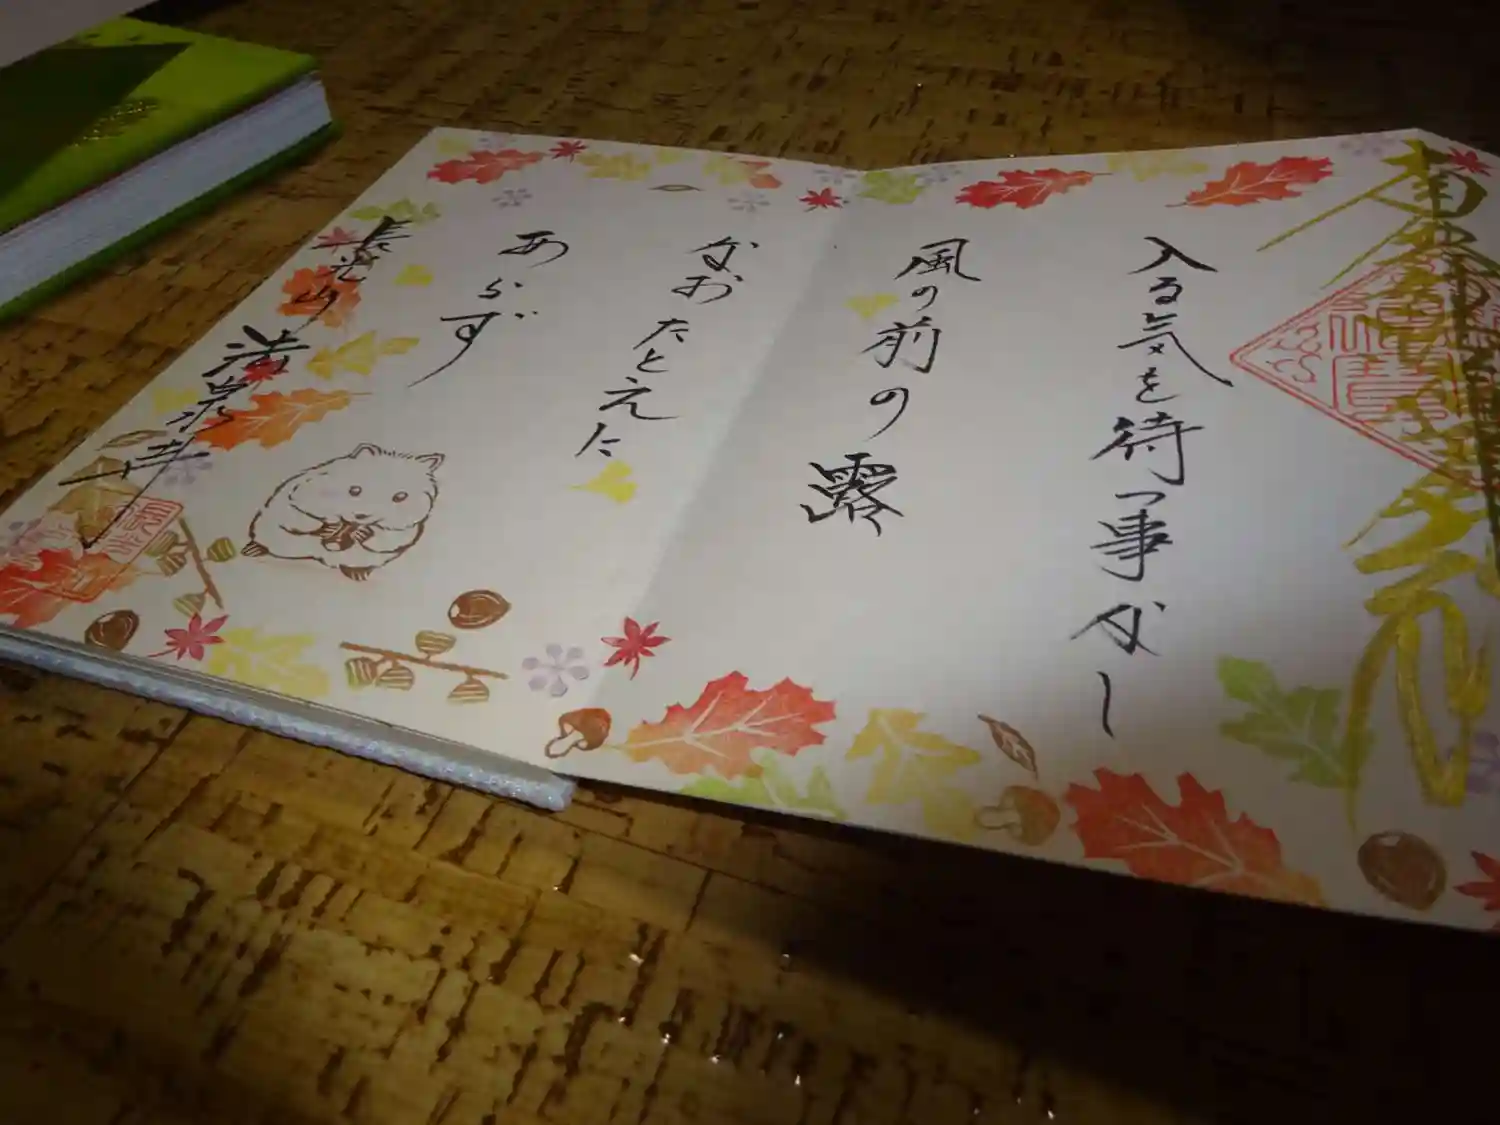 入る気を待つ事なし
風の前の露
なおたとえに
あらず
長光山